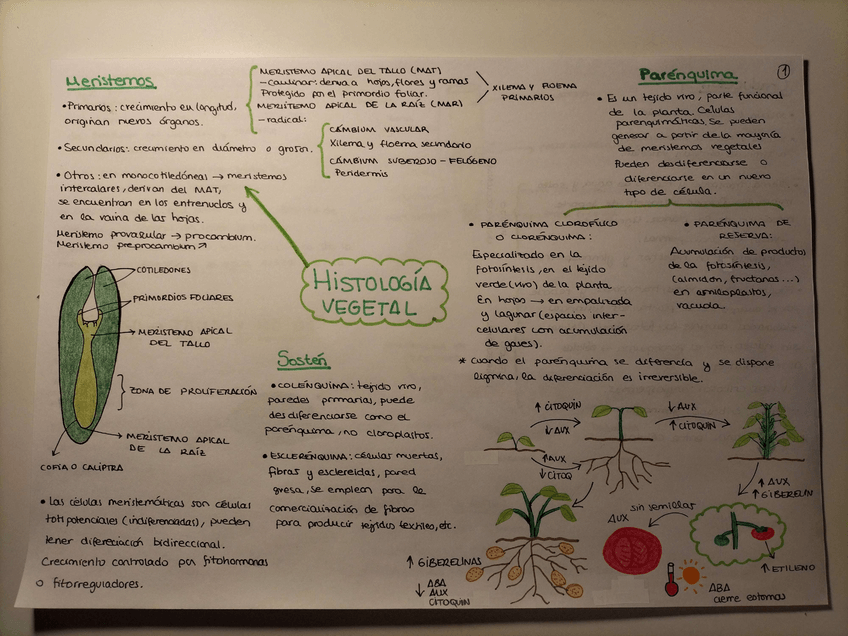 Meristemos
• Primarios: crecimiento en longitud,
originan nuevos órganos.
MERISTEMO APICAL DEL TALLO (MAT)
-caulinar: deriva a hojas, flores y ramas
Protegido por el primordio foliar.
MERISTEMO APICAL DE LA RAÍZ (MAR)
-radical:
XILEMA Y FLOEMA
PRIMARIOS
• Secundarios: crecimiento en diámetro o grosor.
CÁMBIUM VASCULAR
Xilema y floema secundario
CÁMBIUM SUBEROSO - FELÓGENO
Peridermis
• Otros: en monocotiledóneas → meristemos
intercalares, derivan del MAT,
se encuentran en los entrenudos y
en la vaina de las hojas.
Meristemo provascular → procambium.
Meristemo preprocambium ↗
COTILEDONES
PRIMORDIOS FOLIARES
MERISTEMO APICAL
DEL TALLO
ZONA DE PROLIFERACIÓN
MERISTEMO APICAL
DE LA RAÍZ
COFIA O CALIPTRA
• Las células meristemáticas son células
totipotenciales (indiferenciadas), pueden
tener diferenciación bidireccional.
Crecimiento controlado por fitohormonas
o fitorreguladores.
HISTOLOGÍA
VEGETAL
Sostén
• COLÉNQUIMA: tejido vivo,
paredes primarias, puede
desdiferenciarse como el
parénquima, no cloroplastos.
• ESCLERÉNQUIMA: células muertas,
fibras y esclereidas, pared
gruesa, se emplean para la
comercialización de fibras
para producir tejidos textiles, etc.
Parénquima
1
• Es un tejido vivo, parte funcional
de la planta. Células
parenquimáticas. Se pueden
generar a partir de la mayoría
de meristemos vegetales
Pueden desdiferenciarse o
diferenciarse en un nuevo
tipo de célula.
• PARÉNQUIMA CLOROFÍLICO
O CLORÉNQUIMA:
Especializado en la
fotosíntesis, en el tejido
verde (vivo) de la planta
En hojas → en empalizada
y lagunar (espacios inter-
celulares con acumulación
de gases).
• PARÉNQUIMA DE
RESERVA:
Acumulación de productos
de la fotosíntesis,
(almidón, fructanos...)
en amiloplastos,
vacuola.
* Cuando el parénquima se diferencia y se dispone
lignina, la diferenciación es irreversible.
↑ CITOQUÍN
↓ AUX
↑ AUX
↓ CITOQ
↓ AUX
↑ CITOQUIN
↑ AUX
↑ GIBERELÍN
sin semillas
AUX
↑ ETILENO
ABA
cierre estomas
↑ GIBERELINAS
↓ ABA
AUX
CITOQUIN